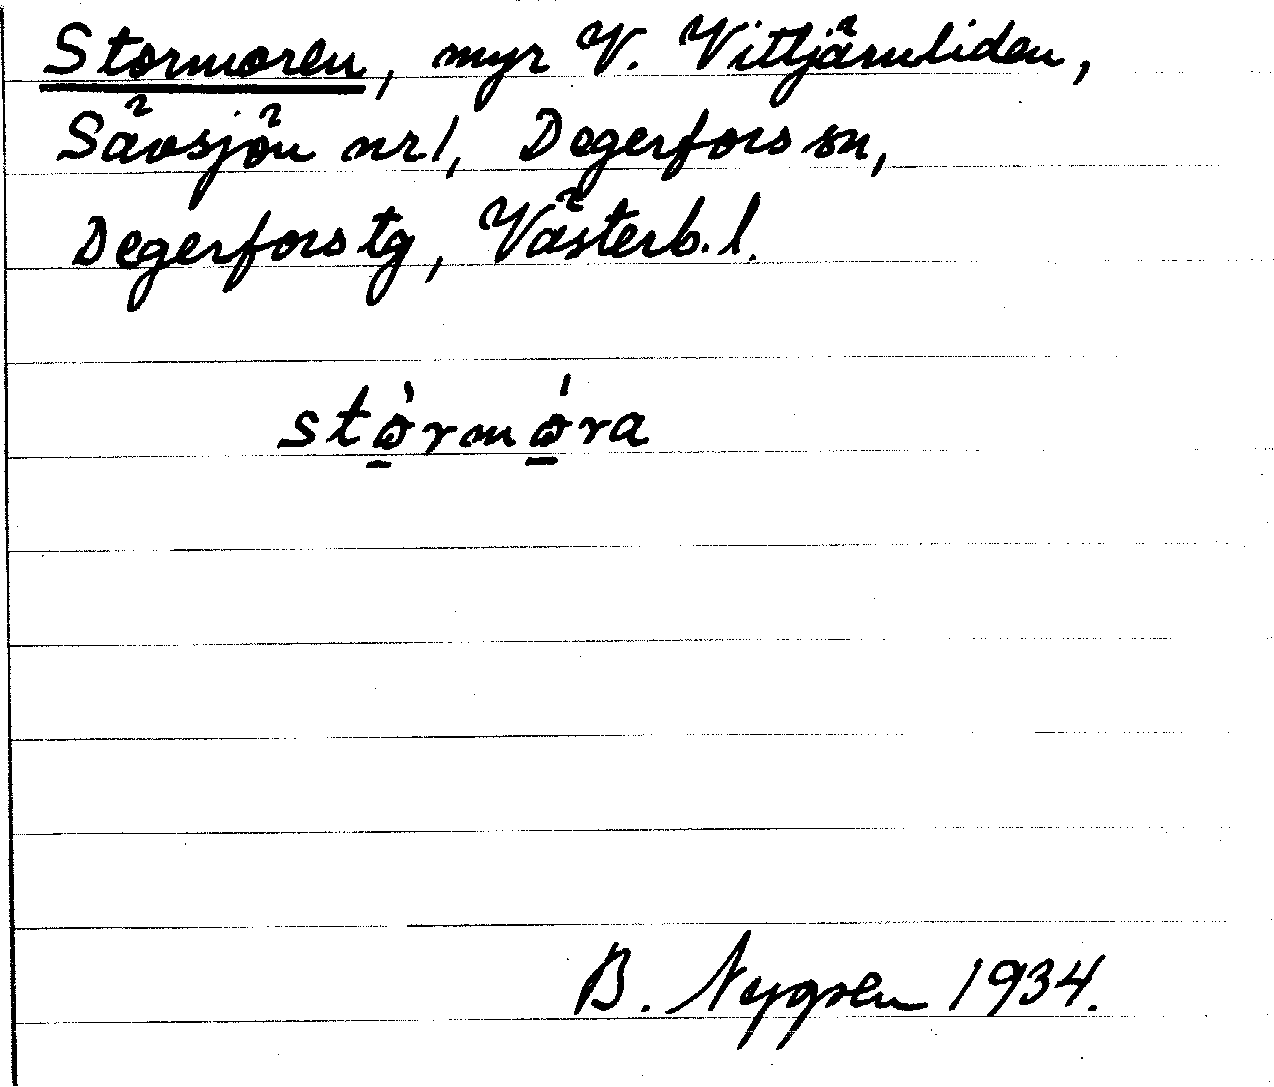 Stormoren, myr V. Vittjärnliden,
Sävsjön nr 1, Degerfors sn,
Degerfors tg, Västerb. l.
stɷ̠̀rmɷ̠́ra
B. Nygren 1934.